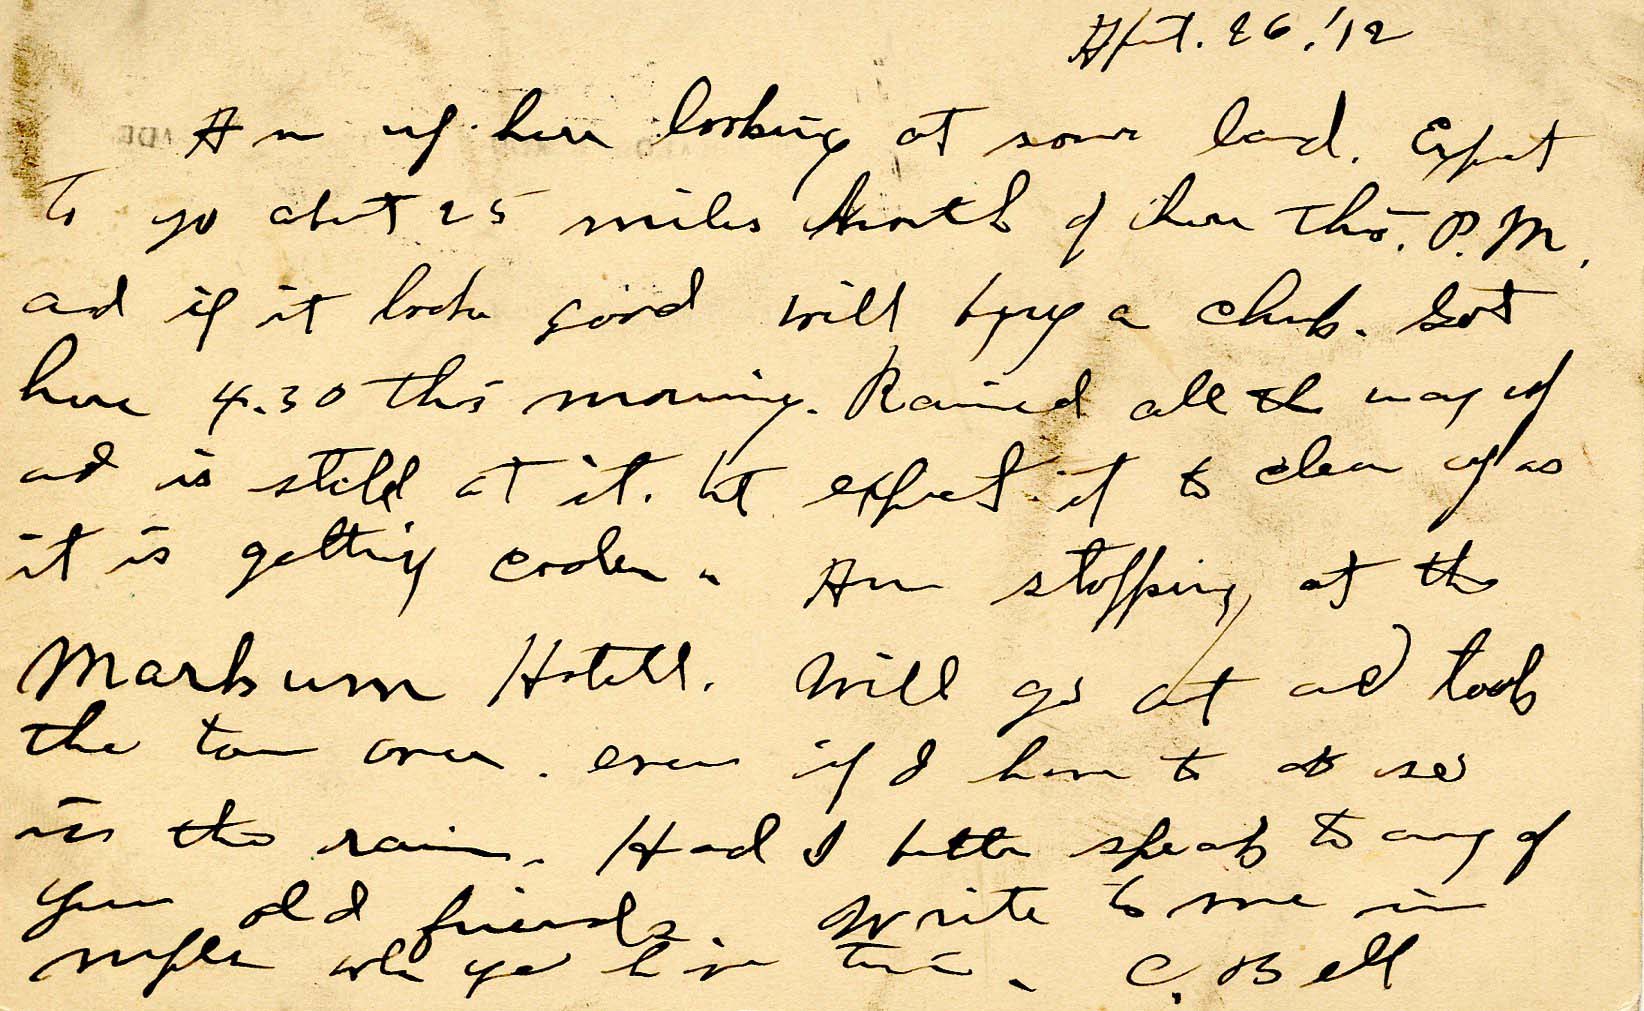 Sept. 26. '12
Am up here looking at some land. Expect
to go about 25 miles North of here this. P.M.
and if it looks good will buy a chunk. Got
here 4.30 this morning. Rained all the way up
and is still at it. but expect it to clear up as
it is getting cooler. Am stopping at the
Markum Hotell. Will go out and look
the town over. even if I have to do so
in the rain. Had I better speak to any of
your old friends. Write to me in
when you have time. C. Bell